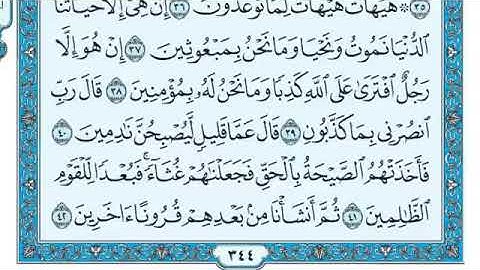 ٣٥ ۞ هَيْهَاتَ هَيْهَاتَ لِمَا تُوعَدُونَ ٣٦ إِنْ هِيَ إِلَّا حَيَاتُنَا
الدُّنْيَا نَمُوتُ وَنَحْيَا وَمَا نَحْنُ بِمَبْعُوثِينَ ٣٧ إِنْ هُوَ إِلَّا
رَجُلٌ افْتَرَىٰ عَلَى اللَّهِ كَذِبًا وَمَا نَحْنُ لَهُ بِمُؤْمِنِينَ ٣٨ قَالَ رَبِّ
انصُرْنِي بِمَا كَذَّبُونِ ٣٩ قَالَ عَمَّا قَلِيلٍ لَّيُصْبِحُنَّ نَادِمِينَ ٤٠
فَأَخَذَتْهُمُ الصَّيْحَةُ بِالْحَقِّ فَجَعَلْنَاهُمْ غُثَاءً ۚ فَبُعْدًا لِّلْقَوْمِ
الظَّالِمِينَ ٤١ ثُمَّ أَنشَأْنَا مِن بَعْدِهِمْ قُرُونًا آخَرِينَ ٤٢
٣٤٤